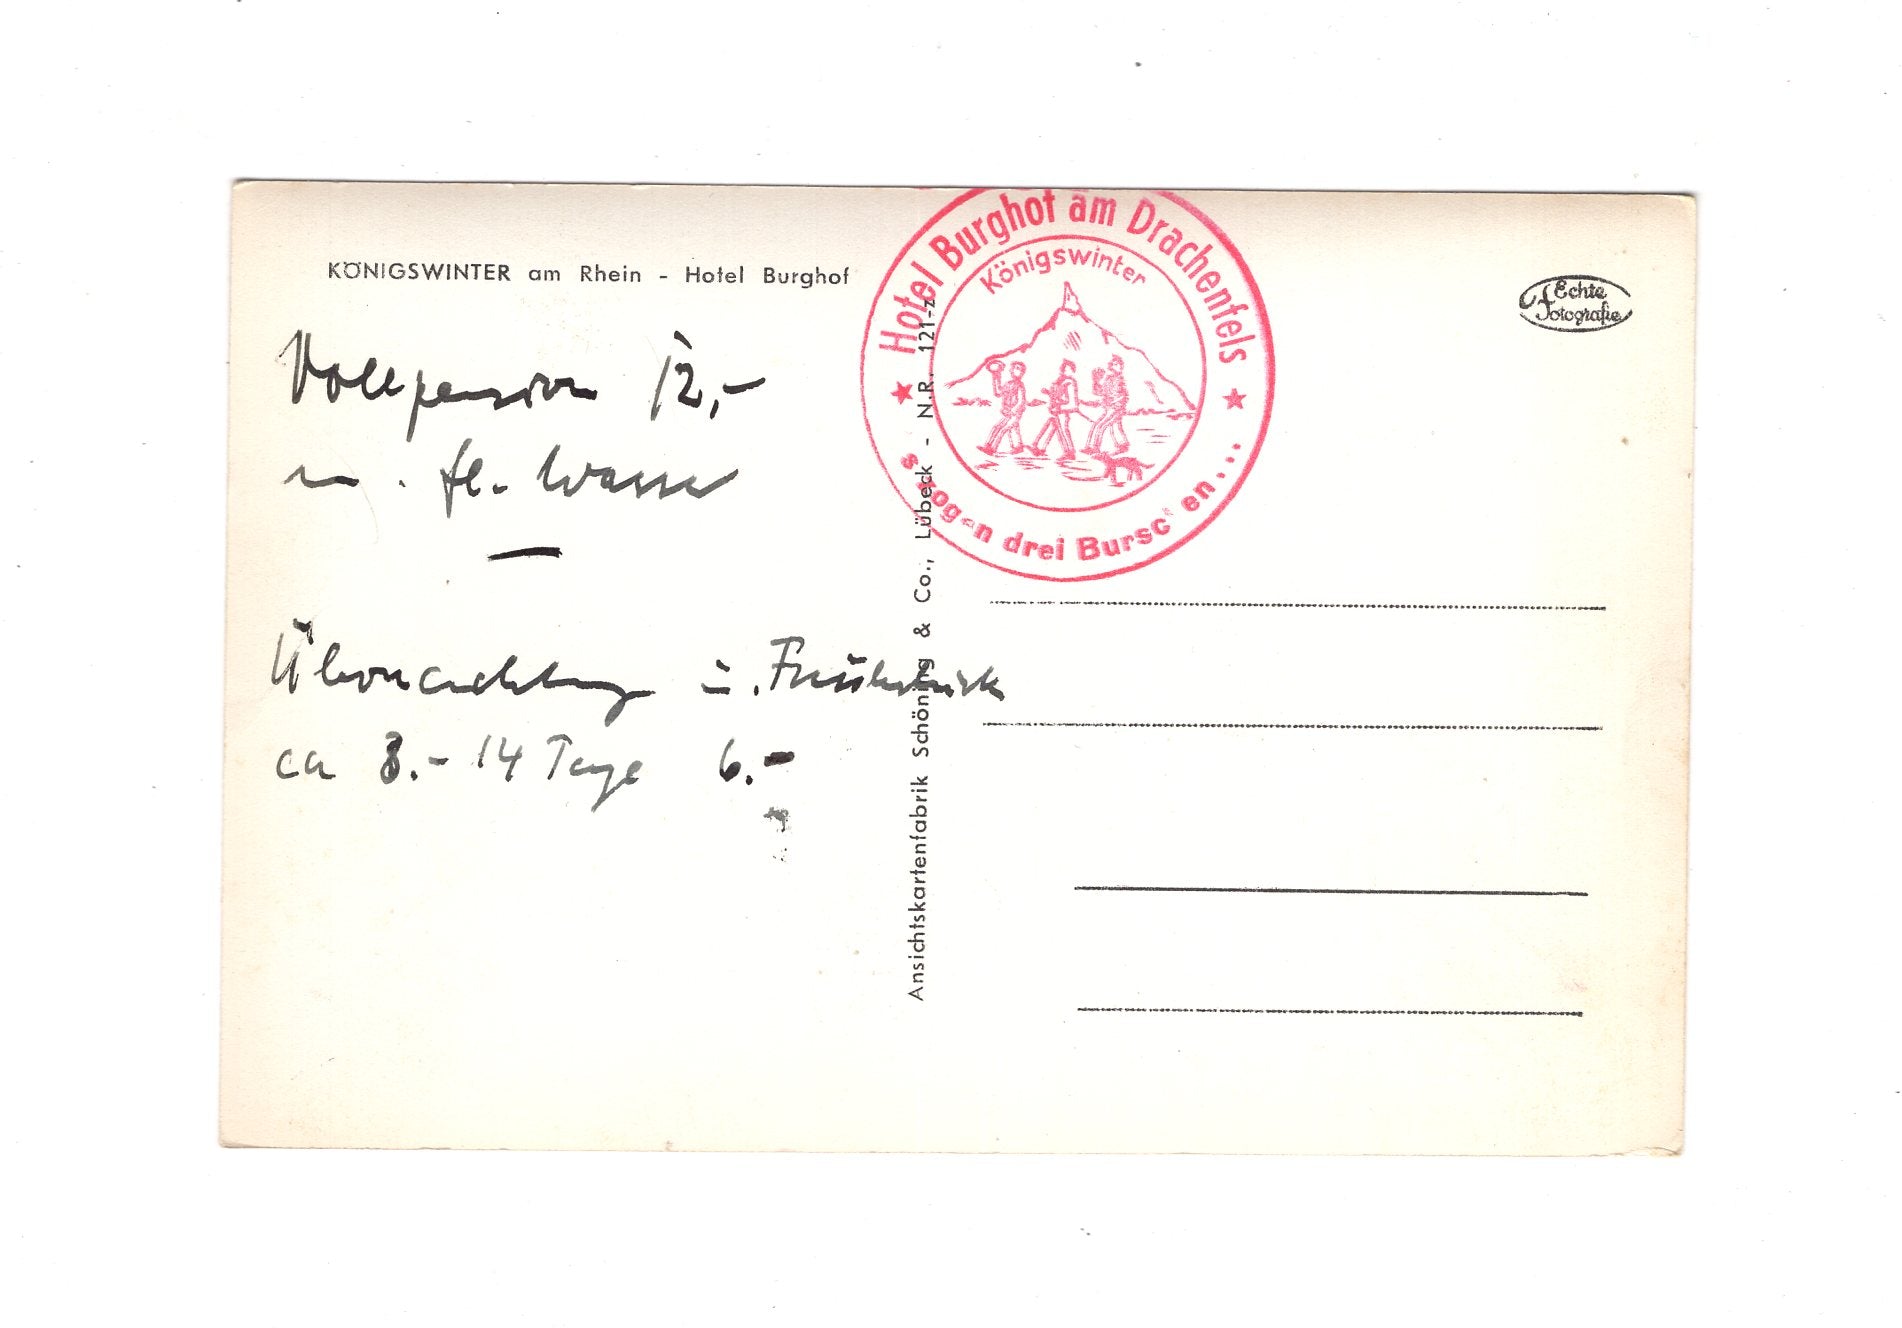 KÖNIGSWINTER am Rhein - Hotel Burghof
Vollpension 12,-
m. fl. Wasser
Übernachtung u. Frühstück
ca 8.- 14 Tage 6.-
Ansichtskartenfabrik Schöning & Co., Lübeck - N.R. 121-z
Hotel Burghof am Drachenfels
Königswinter
s zogen drei Burschen...
Echte
Fotografie